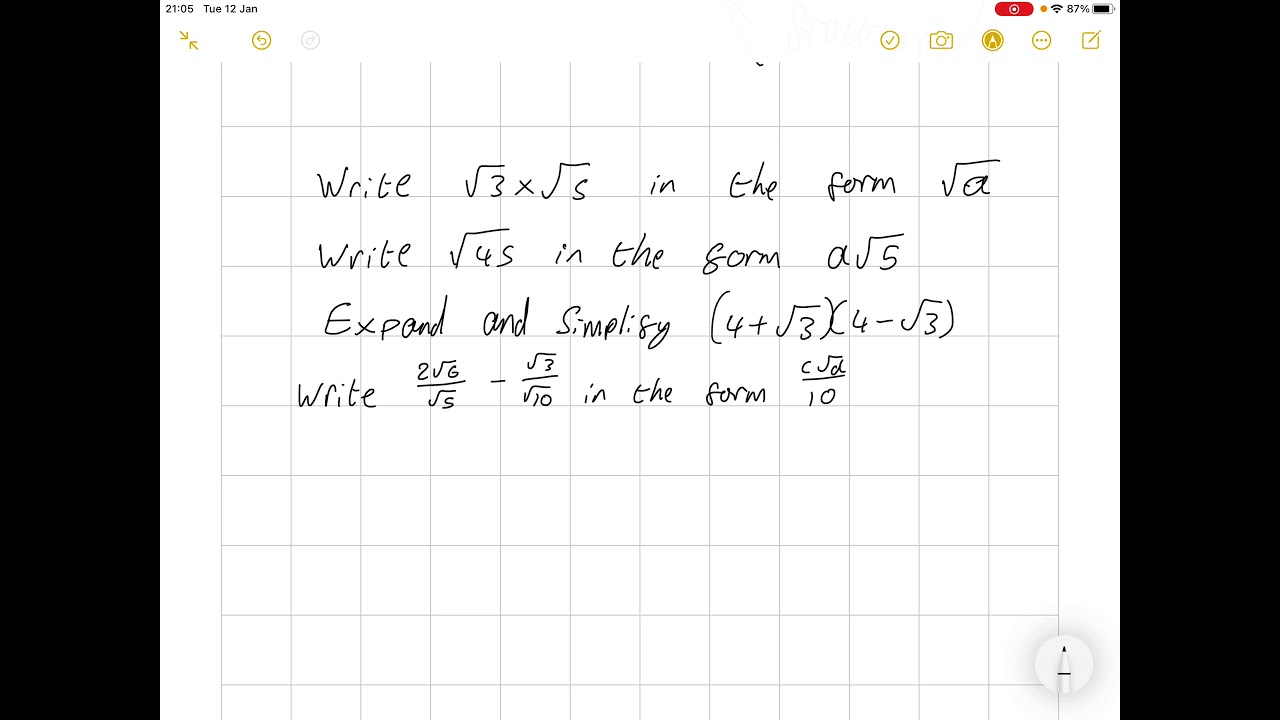 21:05 Tue 12 Jan 87%
Write √3 × √5 in the form √a
Write √45 in the form a√5
Expand and Simplify (4 + √3)(4 − √3)
Write 2√6/√5 − √3/√10 in the form c√d/10